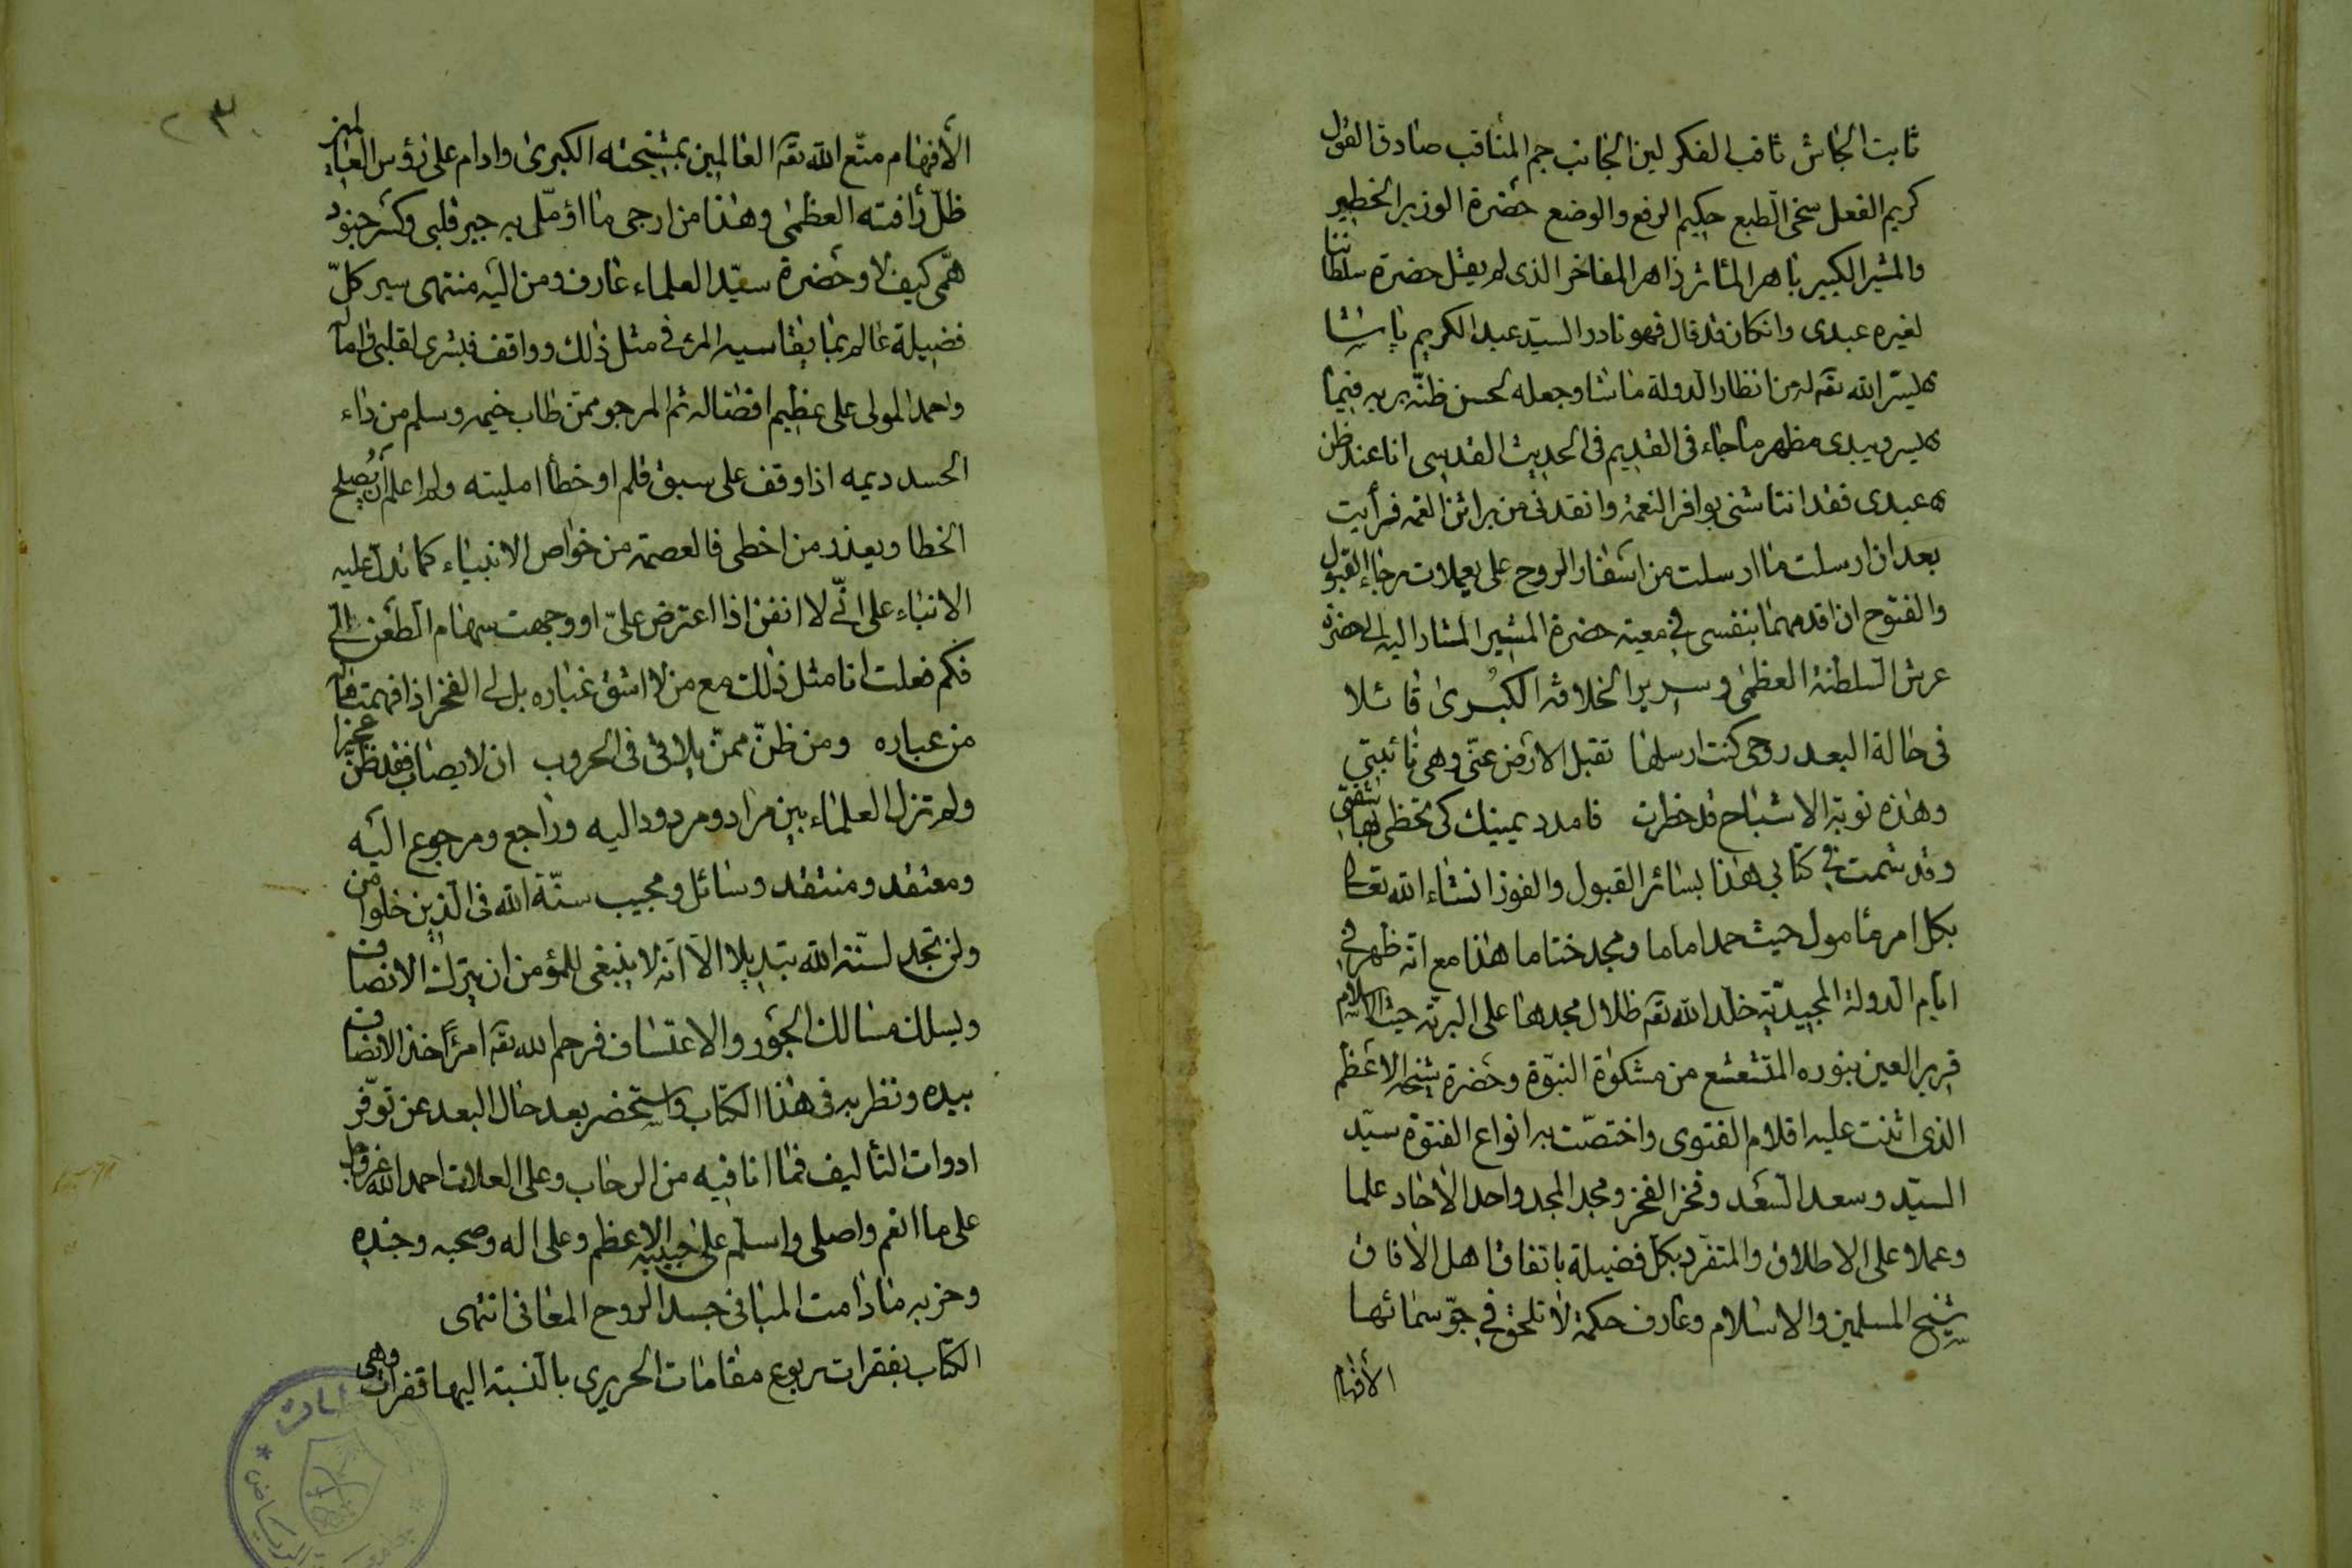 ثابت الجاش ثاقب الفكر لين الجانب جم المناقب صادق القول
كريم الفعل سخى الطبع حكيم الرفع والوضع حضرة الوزير الخطير
والمشير الكبير باهر المآثر زاهر المفاخر الذى لم يقل حضرة سلطاننا
لغيره عبدى وانكان قد قال فهو نادر السيد عبد الكريم پاشا
يسر الله تعه له من انظار الدولة ما شا وجعله لحسن ظنه بربه فيما
يسر ويبدى مظهر ما جاء فى القديم فى الحديث القدسى انا عند ظن
عبدى فقد انتاشنى بوافر النعمة وانقذنى من براثن الغمه فرأيت
بعد ان ارسلت ما ارسلت من اسفار الروح على يعملات رجاء القبول
والفتوح ان اقدمهما بنفسى فى معية حضرة المشير المشار اليه الى حضرة
عرش السلطنة العظمى وسرير الخلافة الكبرى قائلا
فى حالة البعد روحى كنت ارسلها تقبل الارض عنى وهى نائبتى
وهذه نوبة الاشباح قد خطرت فامدد يمينك كى تحظى بها شفتى
وقد شمت فى كتابى هذا بسائر القبول والفوز انشاء الله تعالى
بكل امر مأمول حيث حمد اماما ومجد ختاما هذا مع انه ظهر فى
ايام الدولة المجيدية خلد الله تعه ظلال مجدها على البرية حيث الاسلام
قرير العين بنوره المتشعشع من مشكوة النبوة وحضرة شيخه الاعظم
الذى اثنت عليه اقلام الفتوى واختصت به انواع الفتوة سيد
السيد وسعد السعد وفخر الفخر ومجد المجد واحد الآحاد علما
وعملا على الاطلاق والمتفرد بكل فضيلة باتفاق اهل الآفاق
شيخ المسلمين والاسلام وعارف حكمة لا تلحق فى جو سمائها
الأفهام
٢٣٠
الأفهام متع الله تعه العالمين بمشيخته الكبرى وادام على رؤس العالمين
ظل رأفته العظمى وهذا من ارجى ما اؤمل به جبر قلبى وكسر جنود
همى كيف لا وحضرة سيد العلماء عارف ومن اليه منتهى سير كل
فضيلة عالم بما يقاسيه المرء فى مثل ذلك وواقف فبشرى لقلبى واماله
واحمد المولى على عظيم افضاله ثم المرجو ممن طاب خيمه وسلم من داء
الحسد ديمه اذا وقف على سبق قلم او خطأ امليته ولم اعلم ان يصلح
الخطا ويعذر من اخطى فالعصمة من خواص الانبياء كما تدل عليه
الانباء على انى لا انفن اذا اعترض على او وجهت سهام الطعن الى
فكم فعلت انا مثل ذلك مع من لا اشق غباره بل لى الفخر اذا فهمت ما له
من عباره ومن ظن ممن يلاقى فى الحروب ان لا يصاب فقد ظن عجزا
ولم تزل العلماء بين مراد ومردود اليه وراجع ومرجوع اليه
ومعتقد ومنتقد وسائل ومجيب سنة الله فى الذين خلوا من
ولن تجد لسنة الله تبديلا الا انه لا ينبغى للمؤمن ان يترك الانصاف
ويسلك مسالك الجور والاعتساف فرحم الله تعه امرًا اخذ الانصاف
بيده ونظر به فى هذا الكتاب واستحضر بعد حال البعد عن توفر
ادوات التأليف فما انا فيه من الرحاب وعلى العلات احمد الله عز وجل
على ما انعم واصلى واسلم على حبيبه الاعظم وعلى اله وصحبه وجنده
وحزبه ما دامت المبانى جسد الروح المعانى انتهى
الكتاب بفقرات ربوع مقامات الحريرى بالنسبة اليها قفرات وهى